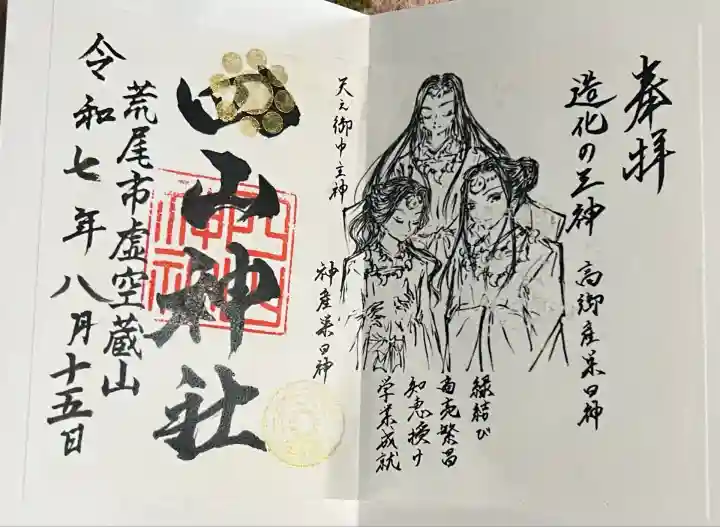 奉拝
造化の三神
高御産巣日神
天之御中主神
神産巣日神
縁結び
商売繁昌
知恵授け
学業成就
四山神社
荒尾市虚空蔵山
令和七年八月十五日